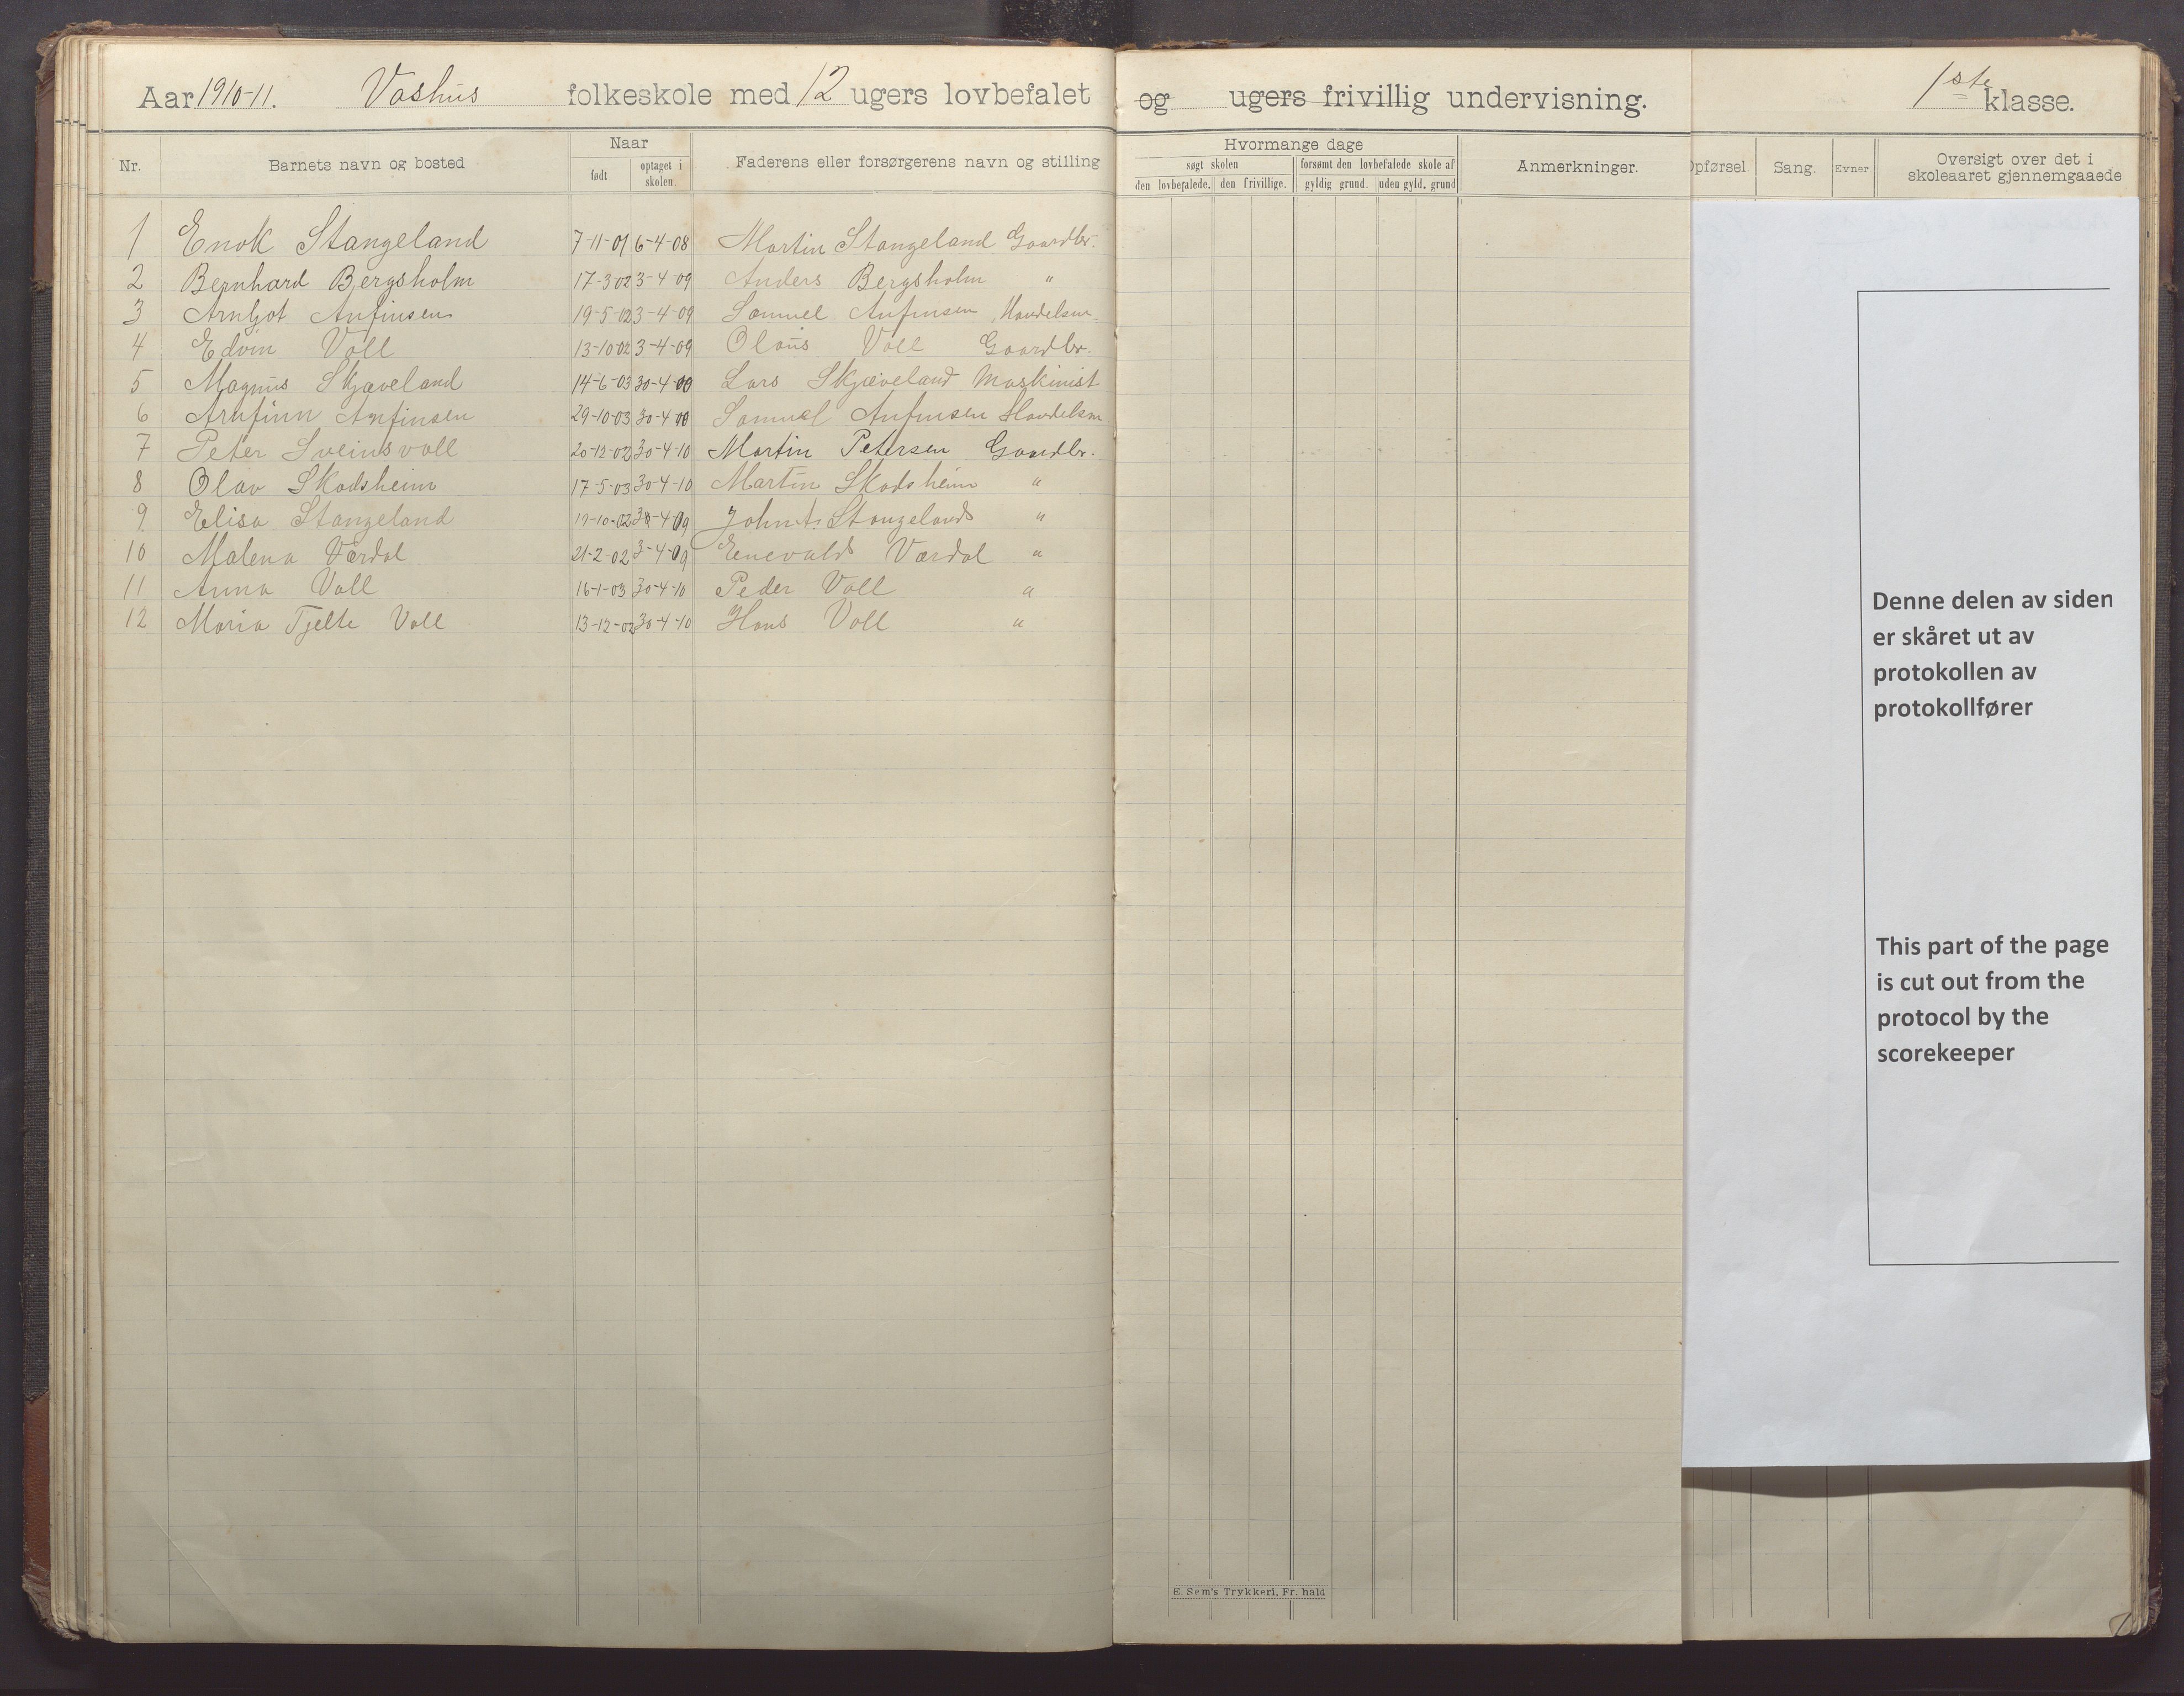 Aar 1910-11. Vashus folkeskole med 12 ugers lovbefalet og ugers frivillig undervisning. 1ste klasse.
Nr. Barnets navn og bosted Naar født optaget i skolen. Faderens eller forsørgerens navn og stilling
Hvormange dage
søgt skolen forsømt den lovbefalede skole af
den lovbefalede. den frivillige. gyldig grund. uden gyld. grund Anmerkninger.
Opførsel Sang. Evner Oversigt over det i skoleaaret gjennemgaaede
1 Enok Stangeland 7-11-01 6-4-08 Martin Stangeland Gaardbr.
2 Bernhard Bergsholm 17-3-02 3-4-09 Anders Bergsholm "
3 Arnljot Anfinsen 19-5-02 3-4-09 Samuel Anfinsen Handelsm.
4 Edvin Voll 13-10-02 3-4-09 Olaus Voll Gaardbr.
5 Magnus Skjæveland 14-6-03 30-4-10 Lars Skjæveland Maskinist
6 Arnfinn Anfinsen 29-10-03 30-4-10 Samuel Anfinsen Handelsm
7 Peter Sveinsvoll 20-12-02 30-4-10 Martin Petersen Gaardbr.
8 Olav Skadsheim 17-5-03 30-4-10 Martin Skadsheim "
9 Elisa Stangeland 3-4-09 Stangeland "
10 Malena Værdal 21-2-02 3-4-09 Enevald Værdal "
11 Anna Voll 16-1-03 30-4-10 Peder Voll "
12 Maria Tjelte Voll 13-12-02 30-4-10 Hans Voll "
E. Sem's Trykkeri, Fr.hald
Denne delen av siden
er skåret ut av
protokollen av
protokollfører
This part of the page
is cut out from the
protocol by the
scorekeeper